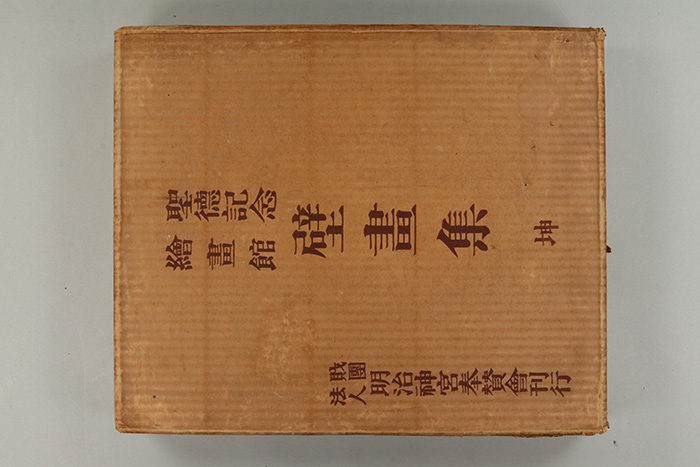 聖德記念
繪畫館
壁畫集 坤
財團法人 明治神宮奉賛會刊行